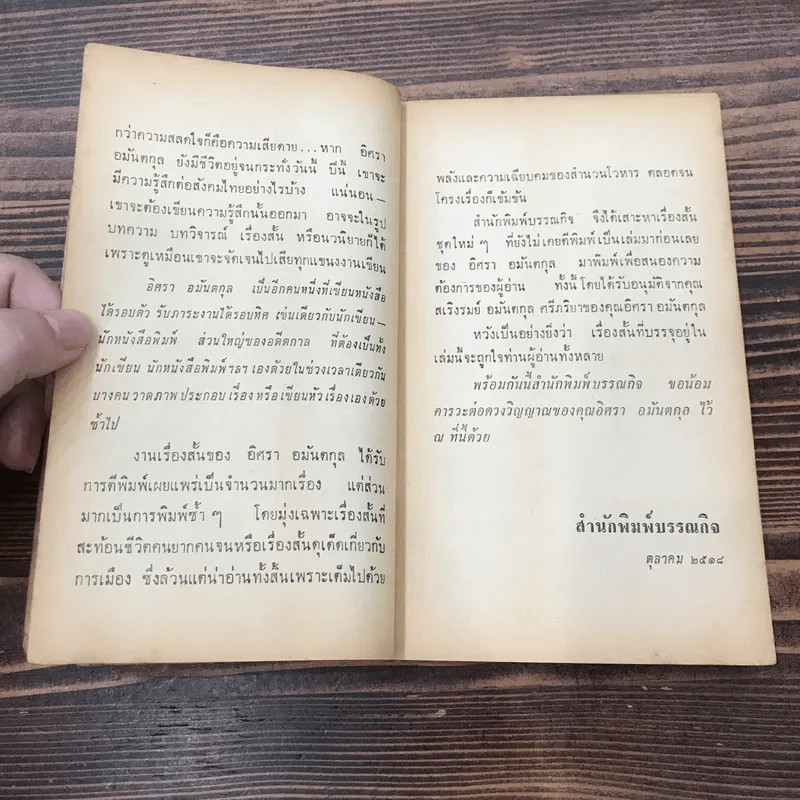 กว่าความสลดใจก็คือความเสียดาย...หาก อิศรา
อมันตกุล ยังมีชีวิตอยู่จนกระทั่งวันนี้ ปีนี้ เขาจะ
มีความรู้สึกต่อสังคมไทยอย่างไรบ้าง แน่นอน—
เขาจะต้องเขียนความรู้สึกนั้นออกมา อาจจะในรูป
บทความ บทวิจารณ์ เรื่องสั้น หรือนวนิยายก็ได้
เพราะดูเหมือนเขาจะจัดเจนไปเสียทุกแขนงงานเขียน
อิศรา อมันตกุล เป็นอีกคนหนึ่งที่เขียนหนังสือ
ได้รอบตัว รับภาระงานได้รอบทิศ เช่นเดียวกับนักเขียน—
นักหนังสือพิมพ์ ส่วนใหญ่ของอดีตกาล ที่ต้องเป็นทั้ง
นักเขียน นักหนังสือพิมพ์ ฯลฯ เองด้วยในช่วงเวลาเดียวกับ
บางคน วาดภาพประกอบเรื่อง หรือเขียนหัวเรื่องเองด้วย
ซ้ำไป
งานเรื่องสั้นของ อิศรา อมันตกุล ได้รับ
การตีพิมพ์เผยแพร่เป็นจำนวนมากเรื่อง แต่ส่วน
มากเป็นการพิมพ์ซ้ำ ๆ โดยมุ่งเฉพาะเรื่องสั้นที่
สะท้อนชีวิตคนยากคนจนหรือเรื่องสั้นดุเด็ดเกี่ยวกับ
การเมือง ซึ่งล้วนแต่น่าอ่านทั้งสิ้นเพราะเต็มไปด้วย
พลังและความเฉียบคมของสำนวนโวหาร ตลอดจน
โครงเรื่องก็เข้มข้น
สำนักพิมพ์บรรณกิจ จึงได้เสาะหาเรื่องสั้น
ชุดใหม่ ๆ ที่ยังไม่เคยตีพิมพ์เป็นเล่มมาก่อนเลย
ของ อิศรา อมันตกุล มาพิมพ์เพื่อสนองความ
ต้องการของผู้อ่าน ทั้งนี้โดยได้รับอนุมัติจากคุณ
สเริงรมย์ อมันตกุล ศรีภริยาของคุณอิศรา อมันตกุล
หวังเป็นอย่างยิ่งว่า เรื่องสั้นที่บรรจุอยู่ใน
เล่มนี้จะถูกใจท่านผู้อ่านทั้งหลาย
พร้อมกันนี้สำนักพิมพ์บรรณกิจ ขอน้อม
คารวะต่อดวงวิญญาณของคุณอิศรา อมันตกุล ไว้
ณ ที่นี้ด้วย
สำนักพิมพ์บรรณกิจ
ตุลาคม ๒๕๑๘